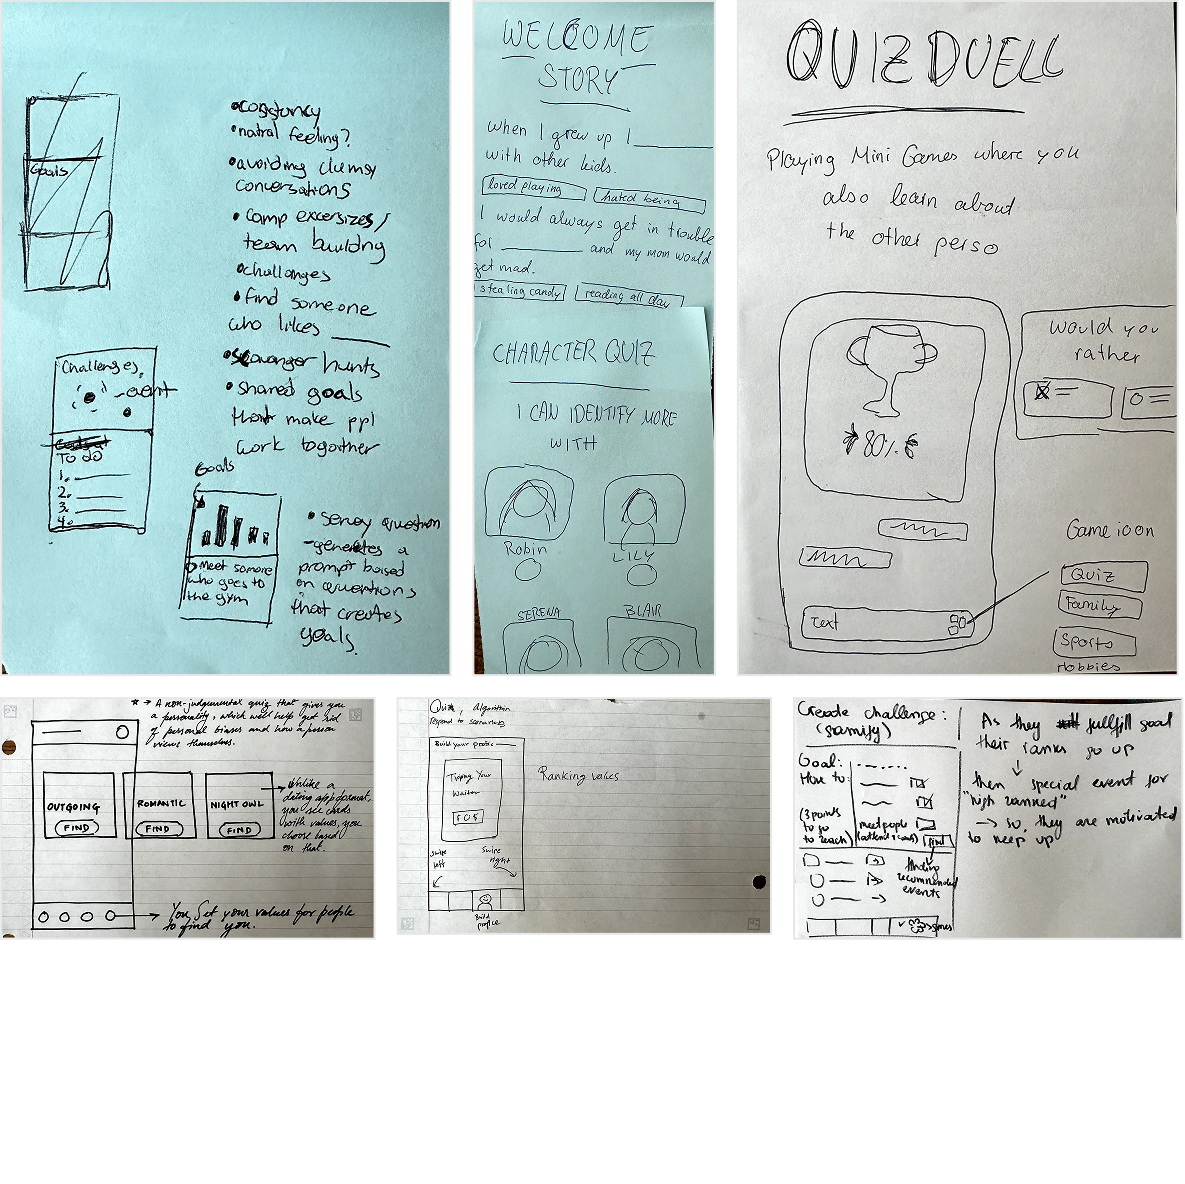 Goals
Challenges
event
To do
1.
2.
3.
4.
• cosistuncy
• natral feeling?
• avoiding clumsy
conversations
• camp excersizes/
team building
• challanges
• find someone
who likes ______
• scavanger hunts
• shared goals
that make ppl
work togather
Goals
meet somone
who goes to
the gym
• Servey question
- generates a
prompt baised
on questions
that creates
goals.
WELCOME
STORY
when I grew up I ______
with other kids.
loved playing
hated being
I would always get in trouble
for ______ and my mom would
get mad.
stealing candy
reading all day
CHARACTER QUIZ
I CAN IDENTIFY MORE
WITH
Robin
LILY
SERENA
BLAIR
QUIZDUELL
Playing Mini Games where you
also learn about
the other perso
80%
Text
would you
rather
Game icon
Quiz
Family
Sports
Hobbies
* → A non-judgemental quiz that gives you
a personality, which will help get rid
of personal biases and how a person
views themselves.
OUTGOING
FIND
ROMANTIC
FIND
NIGHT OWL
FIND
→ Unlike a
dating app format,
you see cards
with values, you
choose based
on that.
→ You Set your values for people
to find you.
Quiz, algorithm
Respond to scenarios
Build your profile
Tipping Your
Waiter
Ranking values
Swipe
left
Swipe
right
Build
profile
Create challenge:
(gamify)
Goal:
How to:
(3 points
to go
to reach)
meet people
find
finding
recommended
events
games
As they fullfill goal
their ranks go up
↓
then special event for
"high ranked"
→ so, they are motivated
to keep up